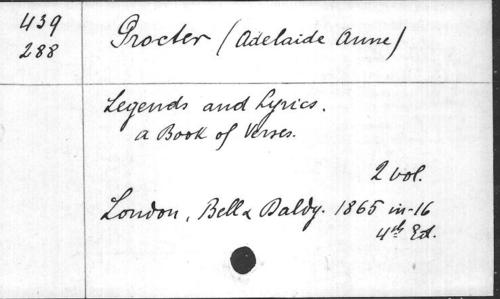 439
288
Procter (Adelaide Anne)
Legends and Lyrics.
a Book of Verses.
2 vol.
London, Bell & Daldy. 1865 in-16
4th Ed.